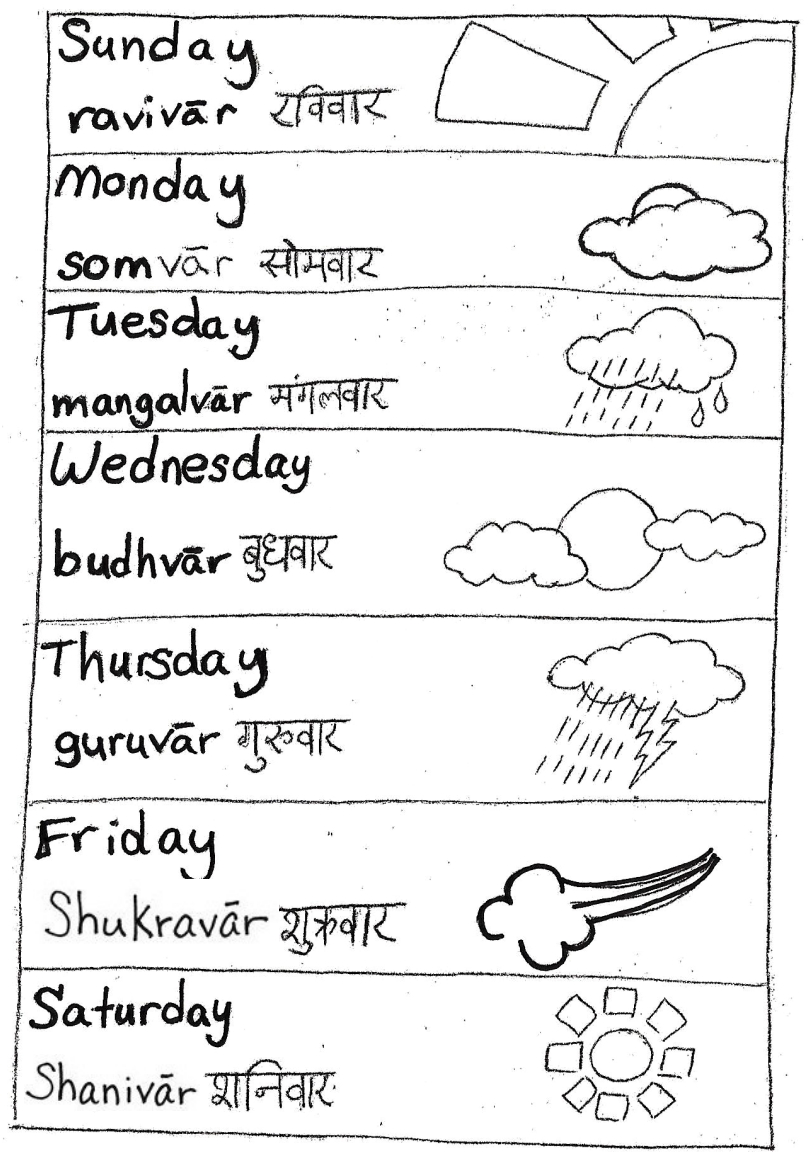 Sunday
ravivār रविवार
Monday
somvār सोमवार
Tuesday
mangalvār मंगलवार
Wednesday
budhvār बुधवार
Thursday
guruvār गुरुवार
Friday
Shukravār शुक्रवार
Saturday
Shanivār शनिवार